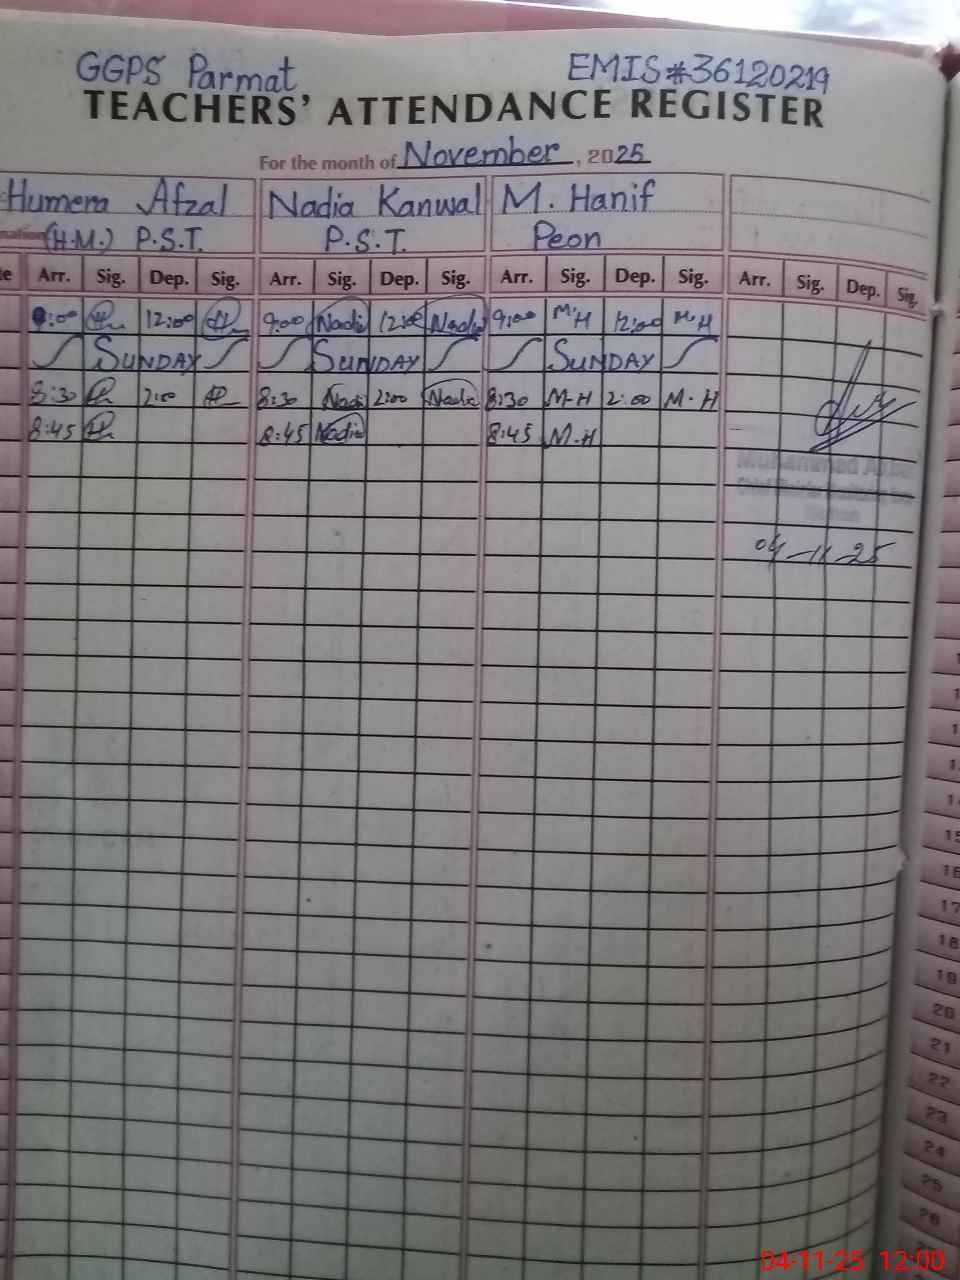 GGPS Parmat EMIS#36120219
TEACHERS' ATTENDANCE REGISTER
For the month of November, 2025
Humera Afzal Nadia Kanwal M. Hanif
(H.M.) P.S.T. P.S.T. Peon
Arr. Sig. Dep. Sig. Arr. Sig. Dep. Sig. Arr. Sig. Dep. Sig. Arr. Sig. Dep. Sig.
9:00 12:00 9:00 Nadia 12:00 Nadia 9:00 M.H 12:00 M.H
SUNDAY SUNDAY SUNDAY
8:30 2:00 8:30 Nadia 2:00 Nadia 8:30 M-H 2:00 M.H
8:45 8:45 Nadia 8:45 M.H
Muhammad
04-11-25
15
16
17
18
19
20
21
22
23
24
25
26
04-11-25 12:00